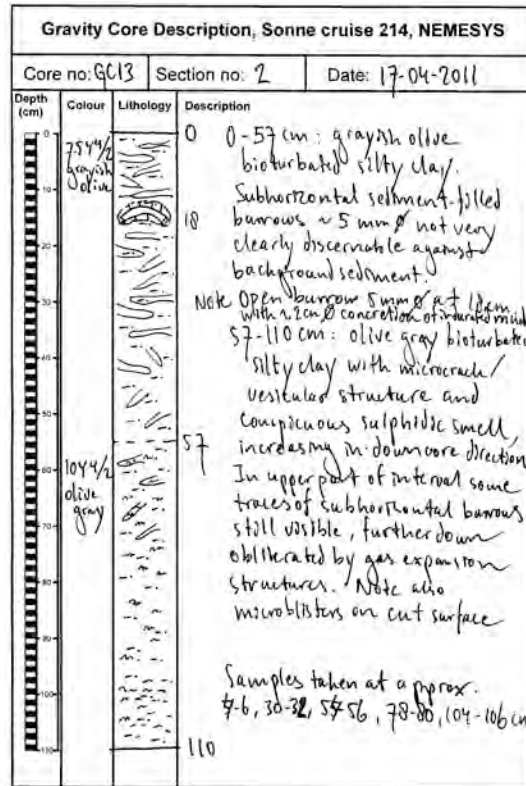 Gravity Core Description, Sonne cruise 214, NEMESYS
Core no: GC13 Section no: 2 Date: 17-04-2011
Depth (cm) Colour Lithology Description
0
10
20
30
40
50
60
70
80
90
100
110
7.5Y4/2
grayish
olive
10Y4/2
olive
gray
0
18
57
110
0-57 cm: grayish olive
bioturbated silty clay.
Subhorizontal sediment-filled
burrows ~ 5 mm ø not very
clearly discernable against
background sediment.
Note Open burrow 5mm ø at 18cm
with ~2cm ø concretion of indurated mud
57-110 cm: olive gray bioturbated
silty clay with microcrack/
vesicular structure and
conspicuous sulphidic smell,
increasing in downcore direction
In upper part of interval some
traces of subhorizontal burrows
still visible, further down
obliterated by gas expansion
structures. Note also
microblisters on cut surface
Samples taken at approx.
4-6, 30-32, 54-56, 78-80, 104-106 cm